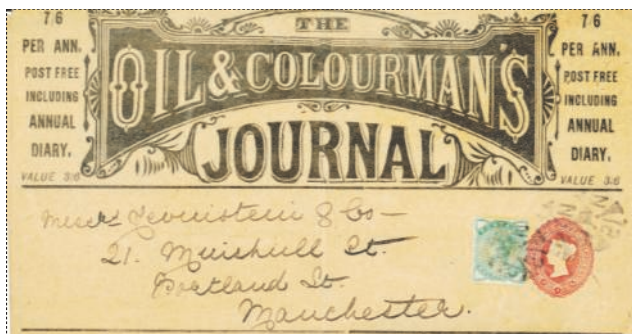 7/6
PER ANN.
POST FREE
INCLUDING
ANNUAL
DIARY.
VALUE 3/6
THE
OIL & COLOURMAN'S
JOURNAL
7/6
PER ANN.
POST FREE
INCLUDING
ANNUAL
DIARY.
VALUE 3/6
Messrs Levinstein & Co —
21. Minshull St.
Portland St.
Manchester.